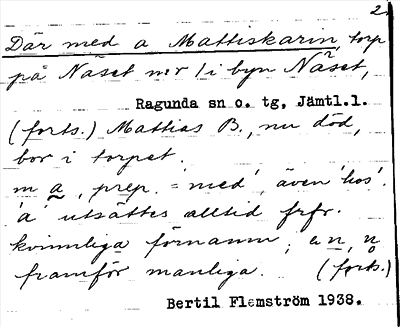 2.
Där med a Mattiskarin, torp
på Näset nr 1 i byn Näset,
Ragunda sn o. tg, Jämtl.l.
(forts.) Mattias B., nu död,
bor i torpet.
m a, prep. = 'med', även 'hos'.
'a' utsättes alltid frfr.
kvinnliga förnamn; an, n
framför manliga. (forts.)
Bertil Flemström 1938.